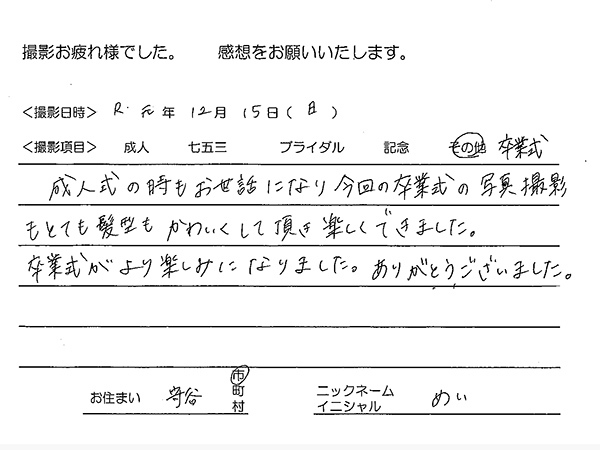 撮影お疲れ様でした。　　感想をお願いいたします。
＜撮影日時＞ R. 元年 12月 15日(日)
＜撮影項目＞ 成人 七五三 ブライダル 記念 その他 卒業式
成人式の時もお世話になり今回の卒業式の写真撮影
もとても髪型もかわいくして頂き楽しくできました。
卒業式がより楽しみになりました。ありがとうございました。
お住まい 守谷 市町村 ニックネーム イニシャル めい